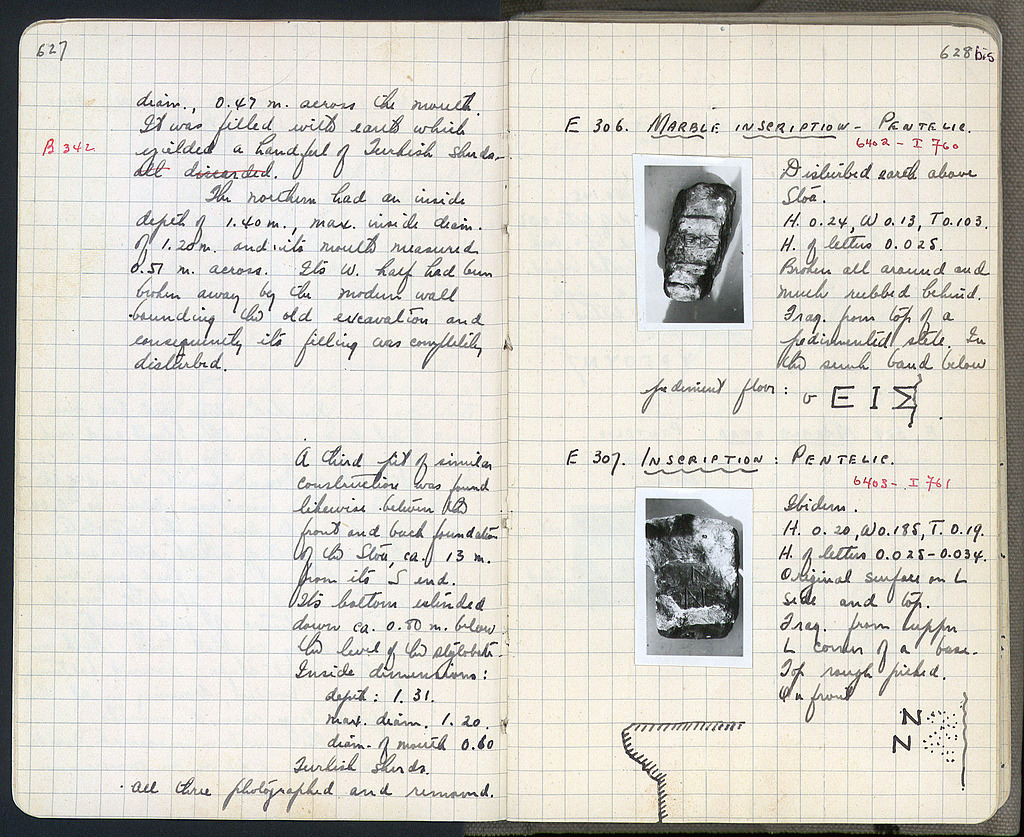 627
diam., 0.47 m. across the mouth.
It was filled with earth which
B 342
yielded a handful of Turkish sherds -
all discarded.
The northern had an inside
depth of 1.40 m., max. inside diam.
of 1.20 m. and its mouth measured
0.51 m. across. Its W. half had been
broken away by the modern wall
bounding the old excavation and
consequently its filling was completely
disturbed.
A third pit of similar
construction was found
likewise between the
front and back foundation
of the Stoa, ca. 13 m.
from its S end.
Its bottom extended
down ca. 0.80 m. below
the level of the stylobate.
Inside dimensions:
depth: 1.31.
max. diam. 1.20
diam. of mouth 0.60
Turkish sherds.
All three photographed and removed.
628 bis
E 306. MARBLE INSCRIPTION - PENTELIC.
6402 - I 760
Disturbed earth above
Stoa.
H. 0.24, W 0.13, T 0.103.
H. of letters 0.025.
Broken all around and
much rubbed behind.
Frag. from top of a
pedimented stele. In
the smooth band below
pediment floor: υ Ε Ι Σ
E 307. INSCRIPTION: PENTELIC.
6403 - I 761
Ibidem.
H. 0.20, W 0.185, T. 0.19.
H. of letters 0.025-0.034.
Original surface on L
side and top.
Frag. from upper
L corner of a base.
Top rough picked.
On front
N
N